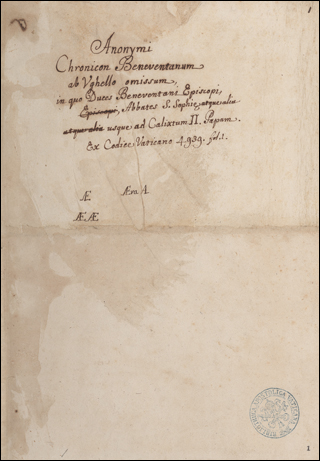 1
Anonymi
Chronicon Beneventanum
ab Vghello omissum,
in quo Duces Beneventani Episcopi,
Episcopi, Abbates S. Sophię, atque alia
atque alia usque ad Calixtum II. Papam.
Ex Codice Vaticano 4939. fol. 1.
Æ Æra A.
Æ Æ
BIBLIOTHECA APOSTOLICA VATICANA
1